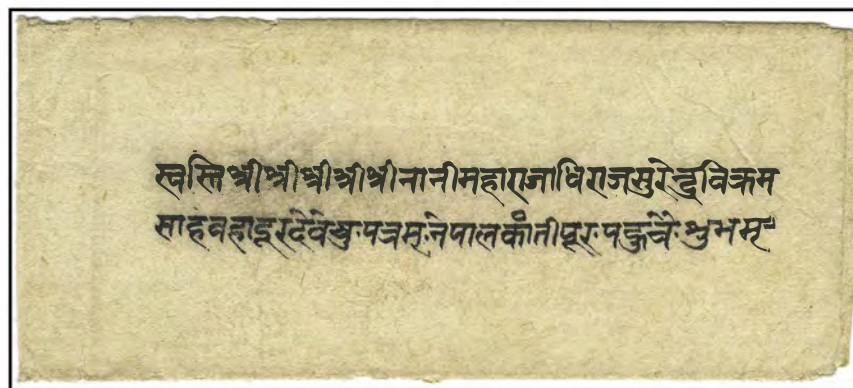 स्वस्ति श्री श्री श्री श्री श्री नानी महाराजाधिराज सुरेन्द्र विक्रम
साह वहादूर देवेषु पत्रम् नेपाल काँतीपूर पहुचै शुभम्